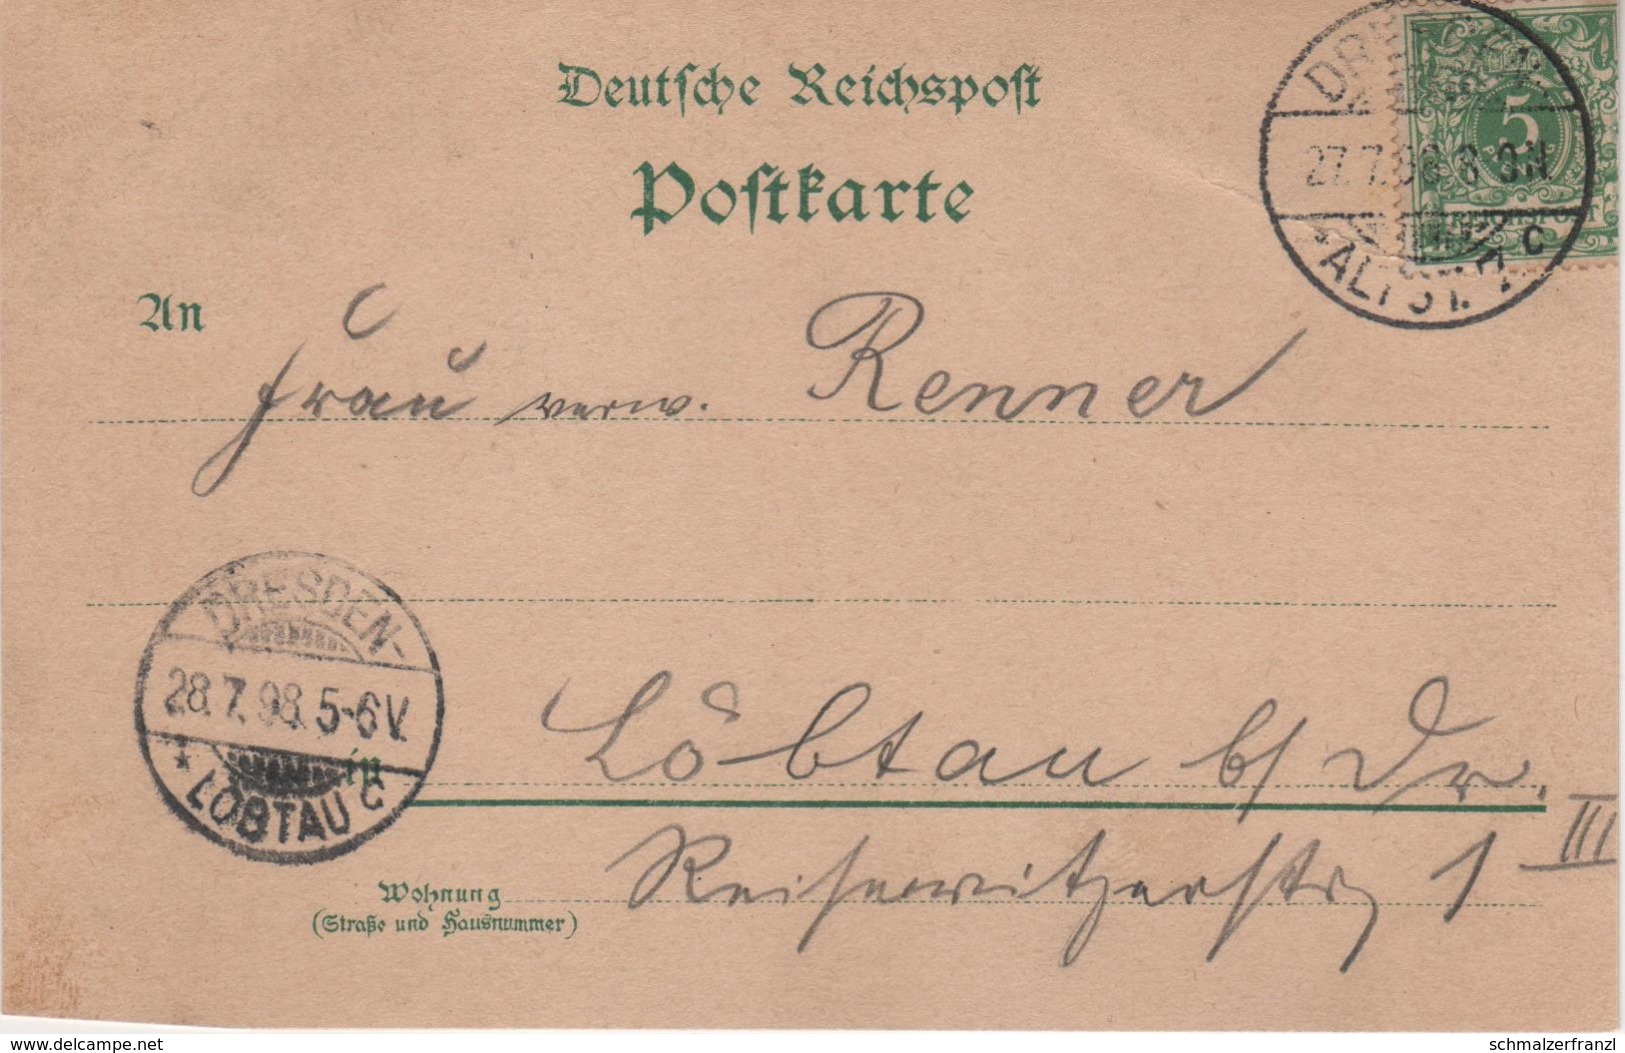 Deutsche Reichspost
Postkarte
5
REICHSPOST
27.7.98. 8-9N.
ALTST.
c
An
Frau verw. Renner
DRESDEN-
28.7.98. 5-6V.
* LÖBTAU c
in
Löbtau b/ Dr.
Reisewitzerstr. 1 III
Wohnung
(Straße und Hausnummer)
www.delcampe.net
schmalzerfranzl